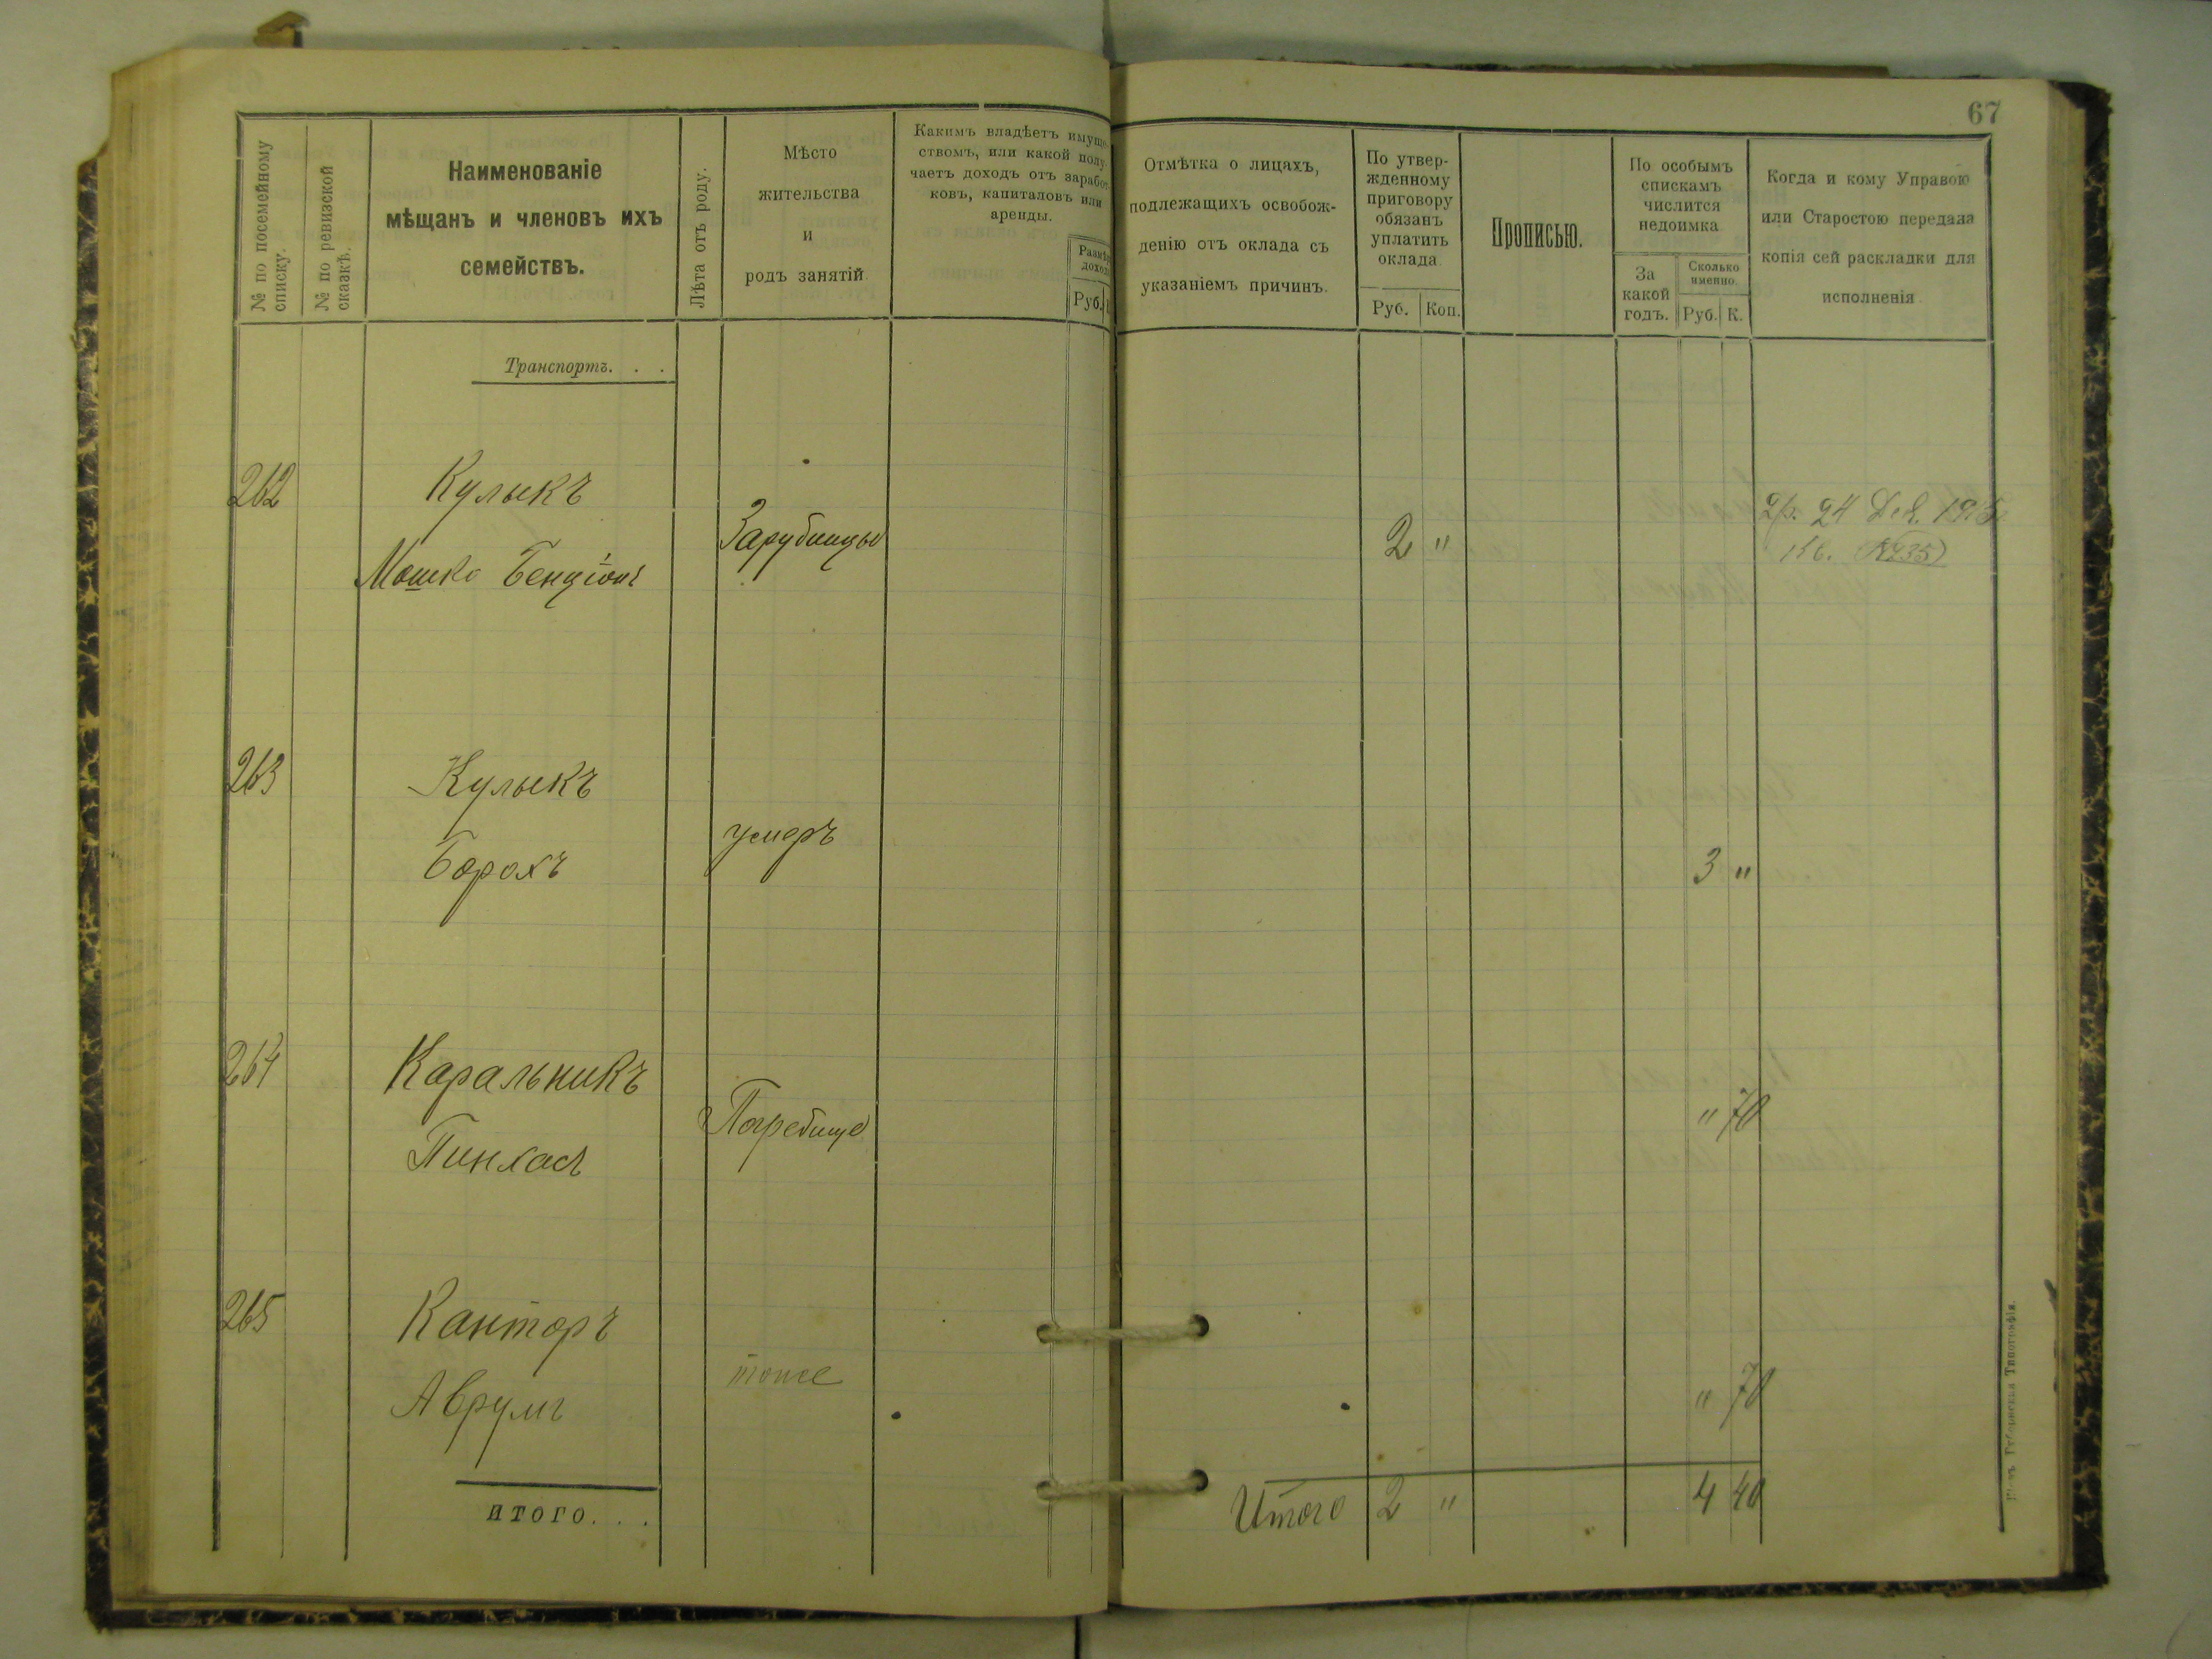 67
№ по посемейному списку.
№ по ревизской сказкѣ.
Наименованіе
мѣщанъ и членовъ ихъ
семействъ.
Лѣта отъ роду.
Мѣсто
жительства
и
родъ занятій
Какимъ владѣетъ имуще-
ствомъ, или какой полу-
чаетъ доходъ отъ заработ-
ковъ, капиталовъ или
аренды.
Размѣръ
дохода
Руб.
Отмѣтка о лицахъ,
подлежащихъ освобож-
денію отъ оклада съ
указаніемъ причинъ.
По утвер-
жденному
приговору
обязанъ
уплатить
оклада
Руб. Коп.
Прописью.
По особымъ
спискамъ
числится
недоимка
За
какой
годъ.
Сколько
именно.
Руб. К.
Когда и кому Управою
или Старостою передана
копія сей раскладки для
исполненія
Транспортъ. . .
262 Кулыкъ
Мошко Бенціонъ
Зарубинцы
2 "
2р. 24 Дек. 1915
Кв. (№235)
263 Кулыкъ
Борохъ
умеръ
3 "
264 Каральникъ
Пинхас
Погребище
" 70
265 Канторъ
Аврумъ
тоже
" 70
ИТОГО. . .
Итого 2 " 4 40
Губернская Типографія.